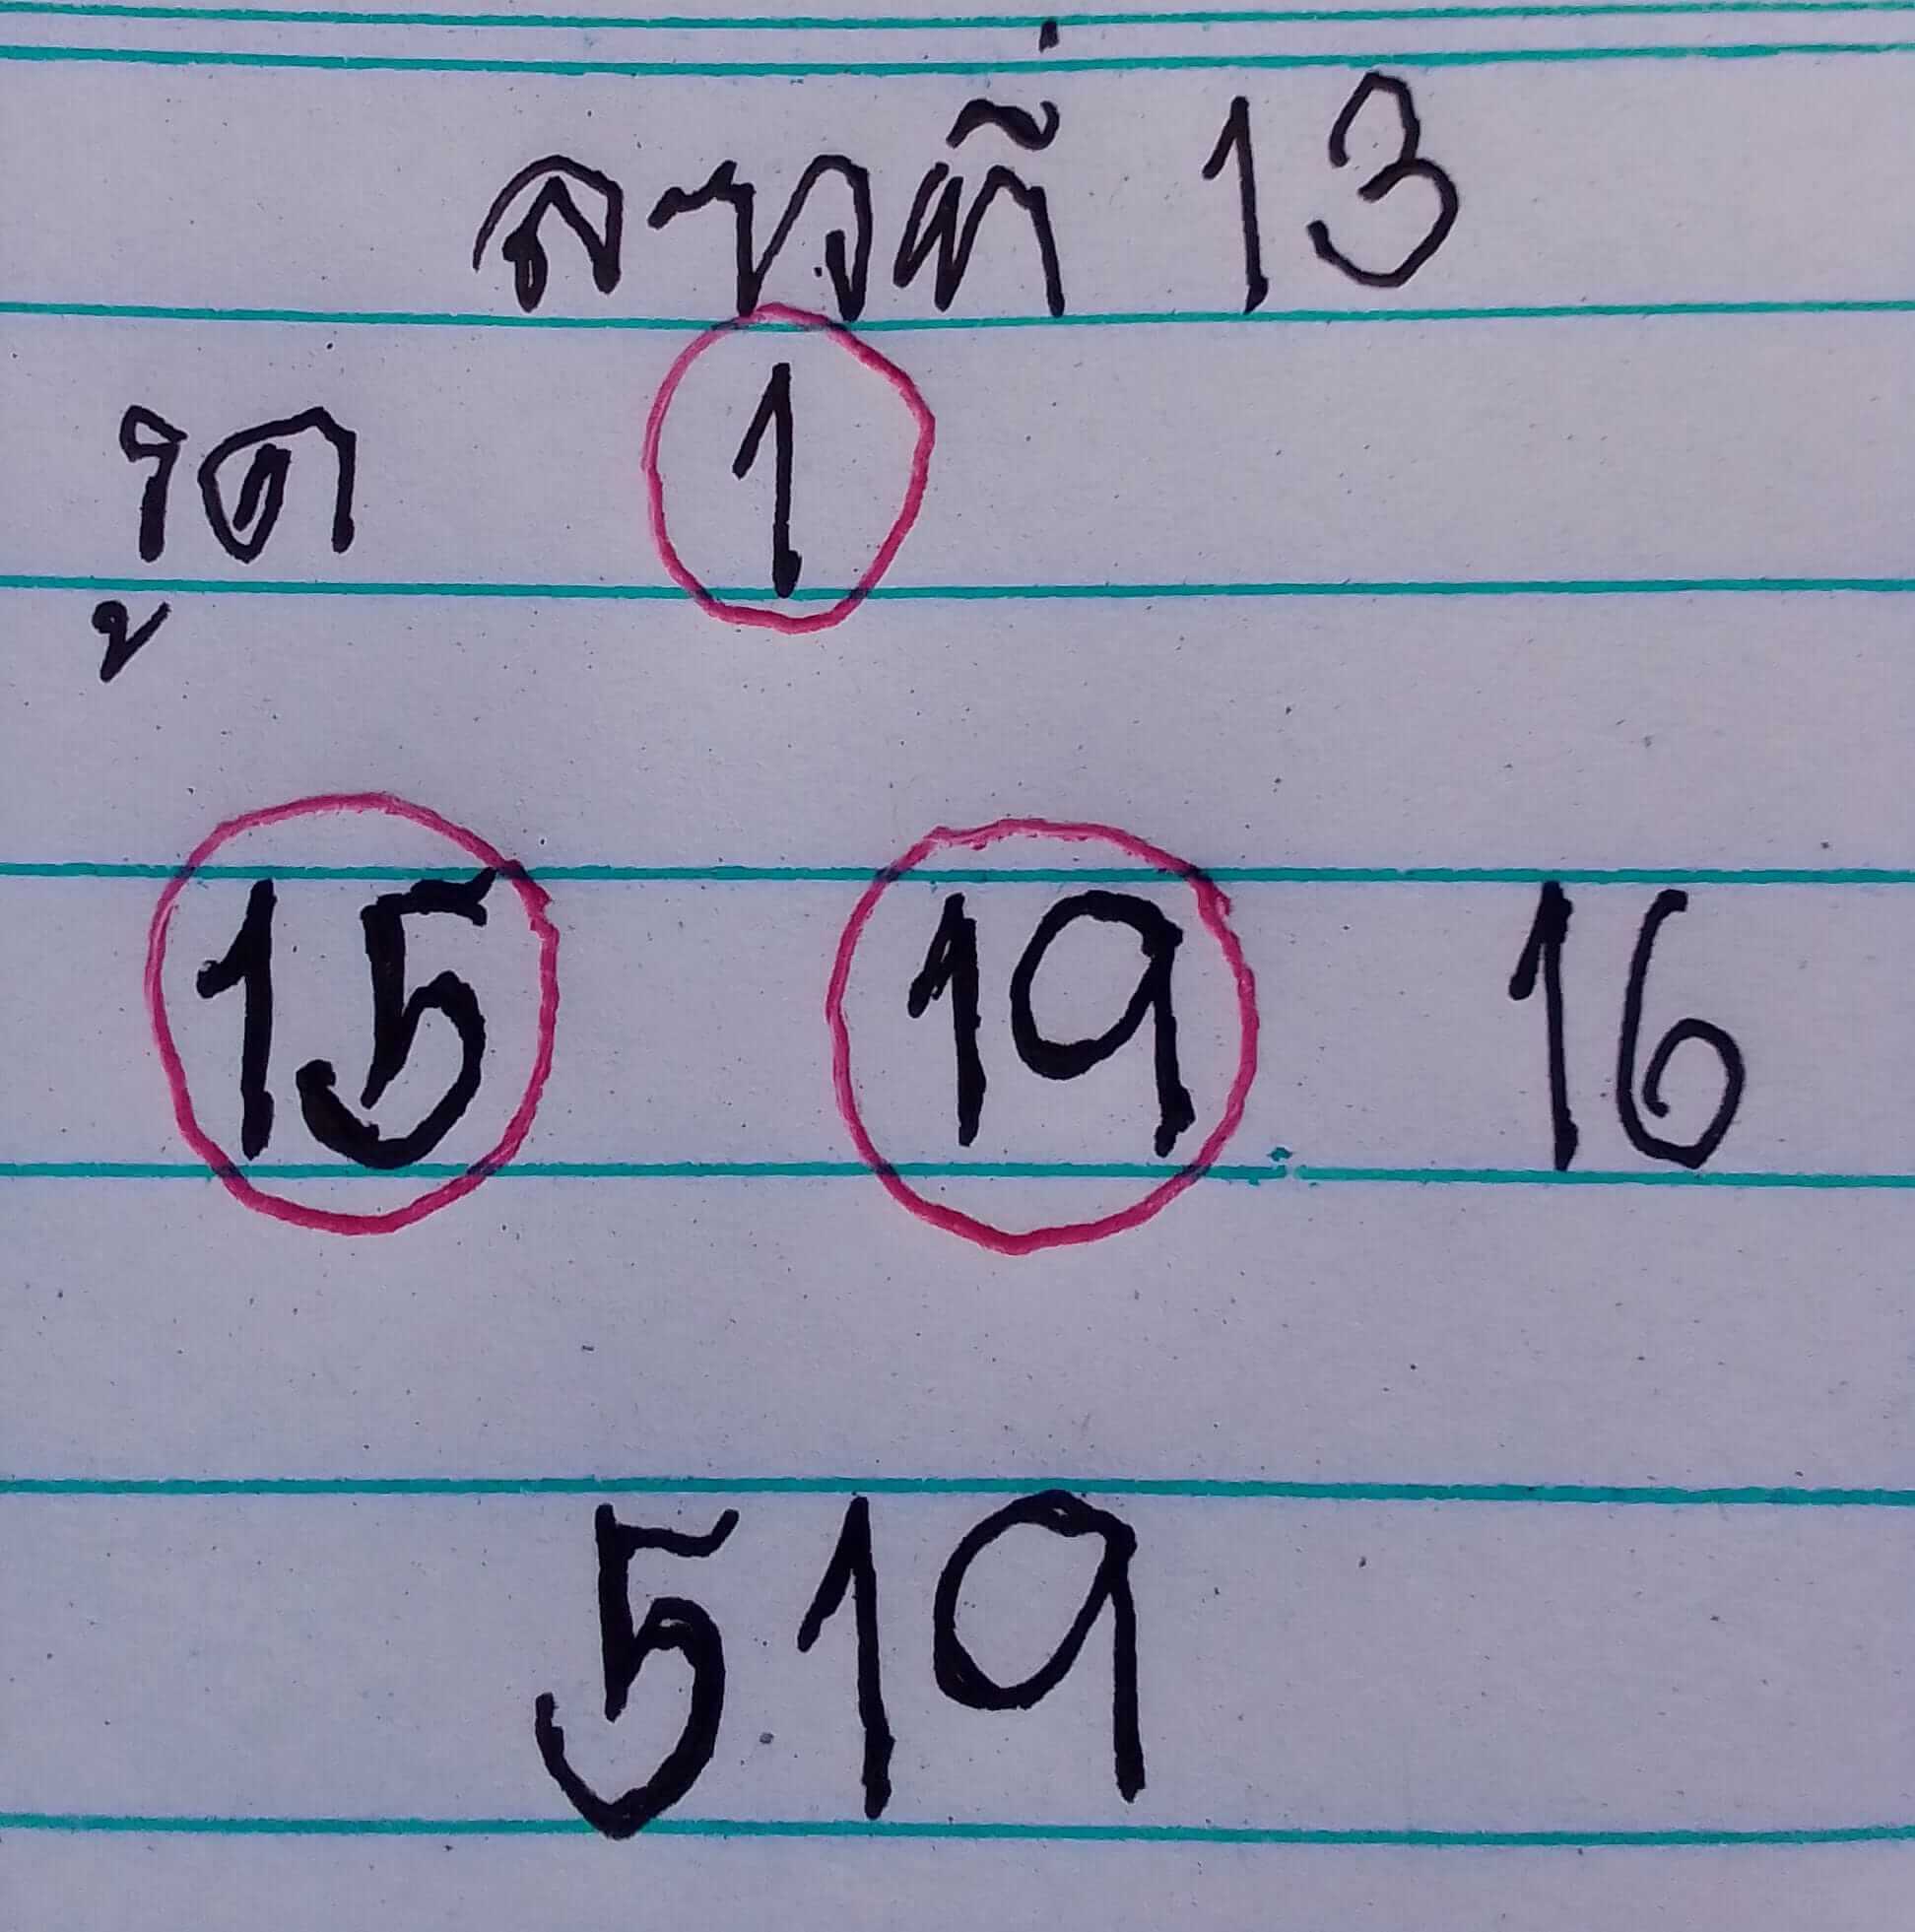 ลาวที่ 13
รูด 1
15 19 16
519